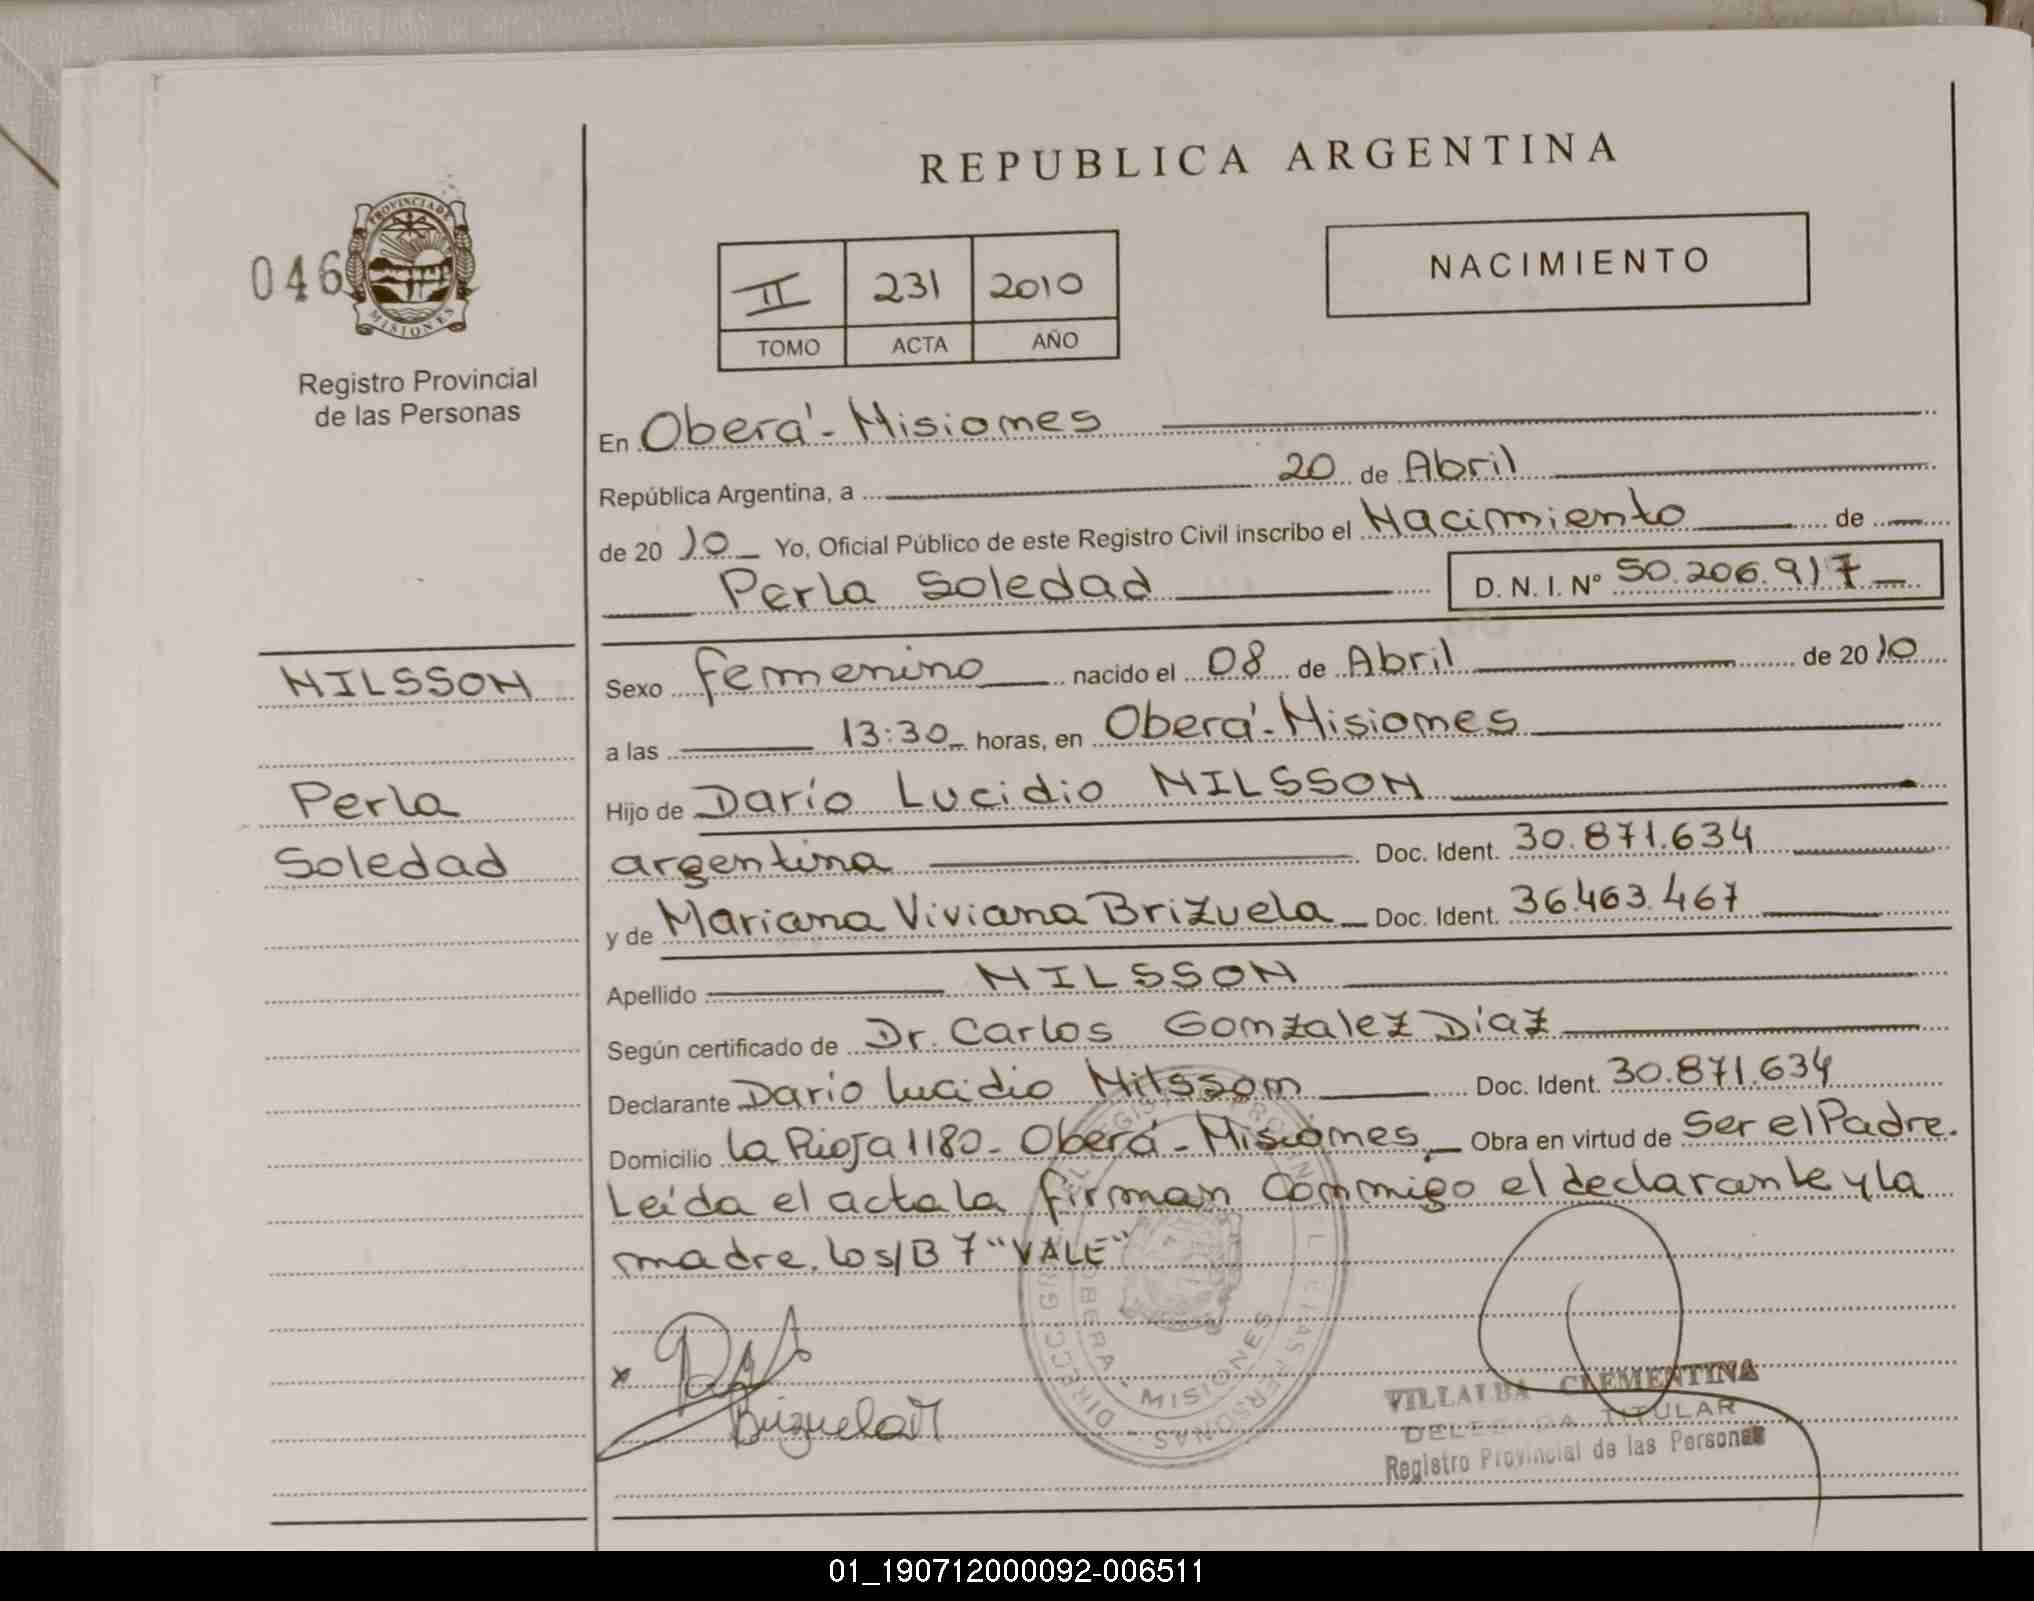 REPUBLICA ARGENTINA
046
PROVINCIA DE
MISIONES
Registro Provincial
de las Personas
II 231 2010
TOMO ACTA AÑO
NACIMIENTO
En Oberá - Misiones
República Argentina, a 20 de Abril
de 20 10 Yo, Oficial Público de este Registro Civil inscribo el Nacimiento de
Perla Soledad D. N. I. Nº 50.206.917
NILSSON
Perla
Soledad
Sexo femenino nacido el 08 de Abril de 2010
a las 13:30 horas, en Oberá - Misiones
Hijo de Darío Lucidio NILSSON
argentina Doc. Ident. 30.871.634
y de Mariana Viviana Brizuela Doc. Ident. 36.463.467
Apellido NILSSON
Según certificado de Dr. Carlos Gonzalez Díaz
Declarante Darío Lucidio Nilsson Doc. Ident. 30.871.634
Domicilio La Rioja 1180 - Oberá - Misiones Obra en virtud de Ser el Padre.
Leída el acta la firman conmigo el declarante y la
madre. Lo s/B 7 "VALE"
OBERA - MISIONES
x
Brizuela M
VILLALBA CLEMENTINA
DELEGADA TITULAR
Registro Provincial de las Personas
01_190712000092-006511